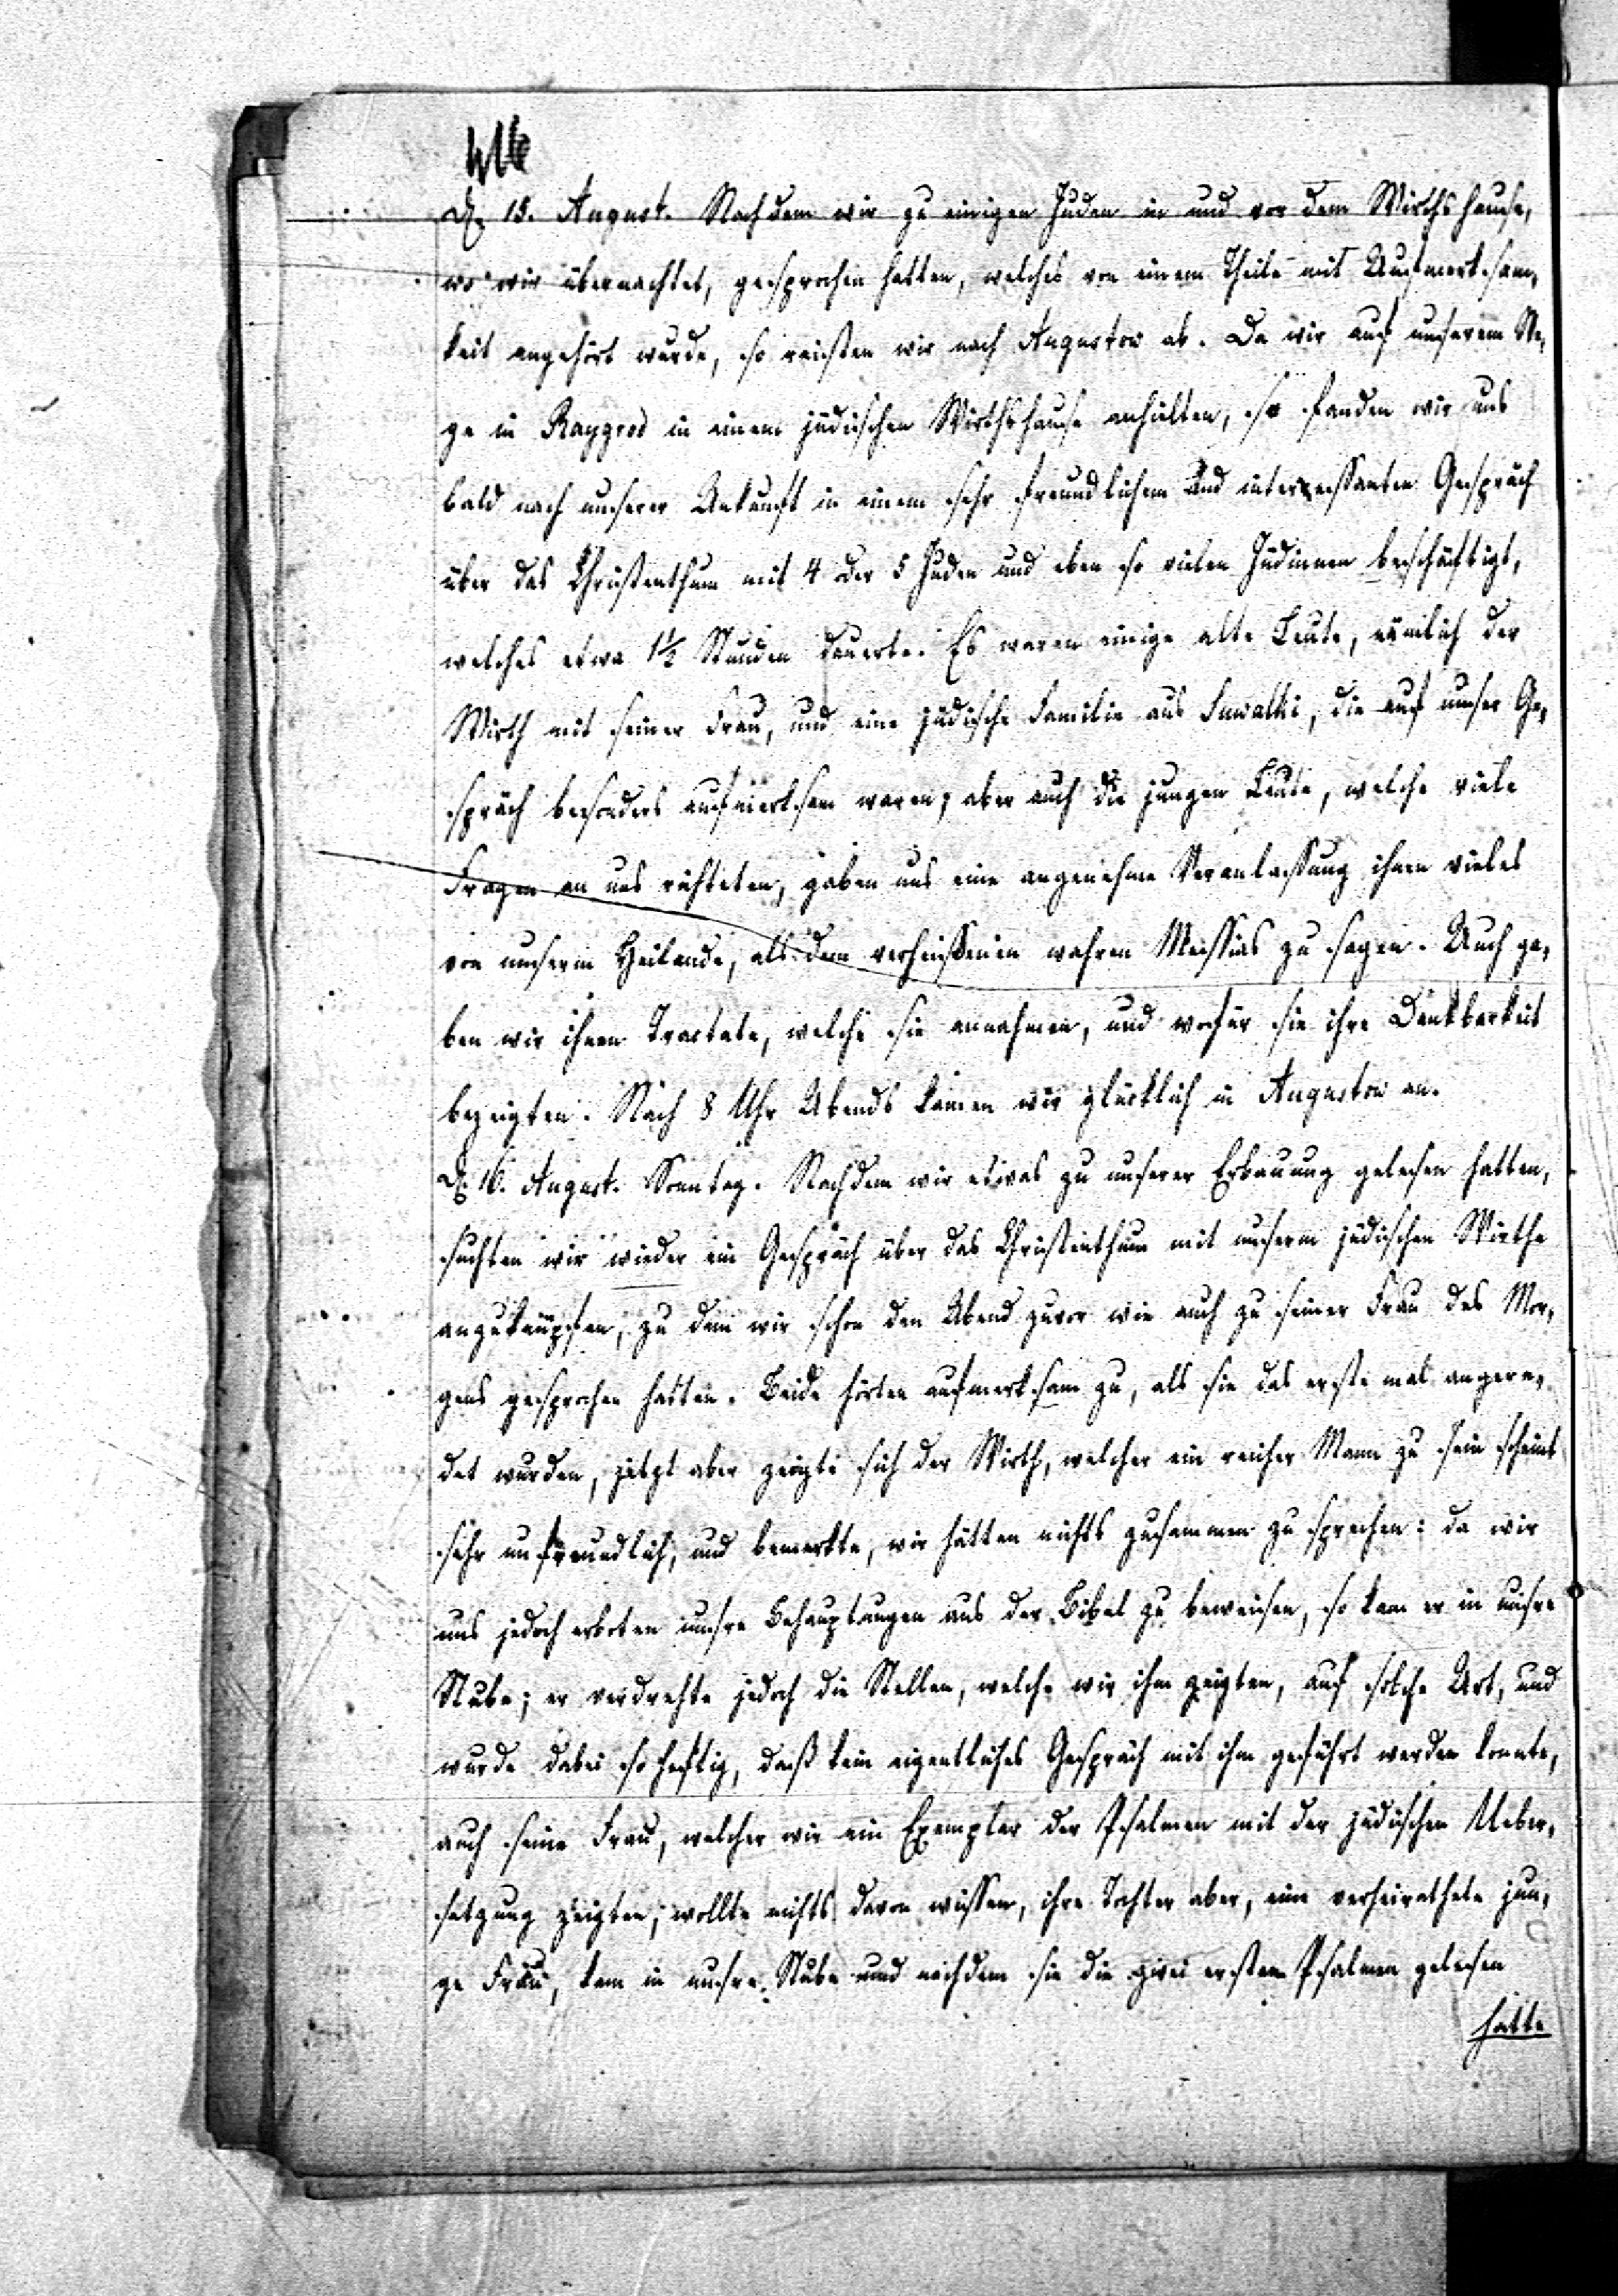 D. 15. August. Nachdem wir zu einigen Juden in und vor dem Wirthshause,
wo wir übernachtet, gesprochen hatten, welches von einem Theile mit Aufmerksam-
keit angehört wurde, so reisten wir nach Augustow ab. Da wir auf unserem We-
ge in Raygrod in einem jüdischen Wirthshause anhielten, so fanden wir uns
bald nach unserer Ankunft in einem sehr freundlichen und interessanten Gespräch
über das Christenthum mit 4 oder 5 Juden und eben so vielen Jüdinnen beschäftigt,
welches etwa 1½ Stunden dauerte. Es waren einige alte Leute, nämlich der
Wirth mit seiner Frau, und eine jüdische Familie aus Suwalki, die auf unser Ge-
spräch besonders aufmerksam waren; aber auch die jungen Leute, welche viele
Fragen an uns richteten, gaben uns eine angenehme Veranlassung ihnen vieles
von unserm Heilande, als dem verheissenen wahren Messias zu sagen. Auch ga-
ben wir ihnen Tractate, welche sie annahmen, und wofür sie ihre Dankbarkeit
bezeigten. Nach 8 Uhr Abends kamen wir glücklich in Augustow an.
D. 16. August. Sonntag. Nachdem wir etwas zu unserer Erbauung gelesen hatten,
suchten wir wieder ein Gespräch über das Christenthum mit unserm jüdischen Wirthe
anzuknüpfen, zu dem wir schon den Abend zuvor wie auch zu seiner Frau des Mor-
gens gesprochen hatten. Beide hörten aufmerksam zu, als sie das erste mal angere-
det wurden, jetzt aber zeigte sich der Wirth, welcher ein reicher Mann zu sein scheint
sehr unfreundlich, und bemerkte, wir hätten nichts zusammen zu sprechen: da wir
uns jedoch erboten unsre Behauptungen aus der Bibel zu beweisen, so kam er in unsre
Stube; er verdrehte jedoch die Stellen, welche wir ihm zeigten, auf solche Art, und
wurde dabei so heftig, daß kein eigentliches Gespräch mit ihm geführt werden konnte,
auch seine Frau, welcher wir ein Exemplar der Psalmen mit der jüdischen Ueber-
setzung zeigten, wollte nichts davon wissen, ihre Tochter aber, eine verheirathete jun-
ge Frau, kam in unsre Stube und nachdem sie die zwei ersten Psalmen gelesen
hatte